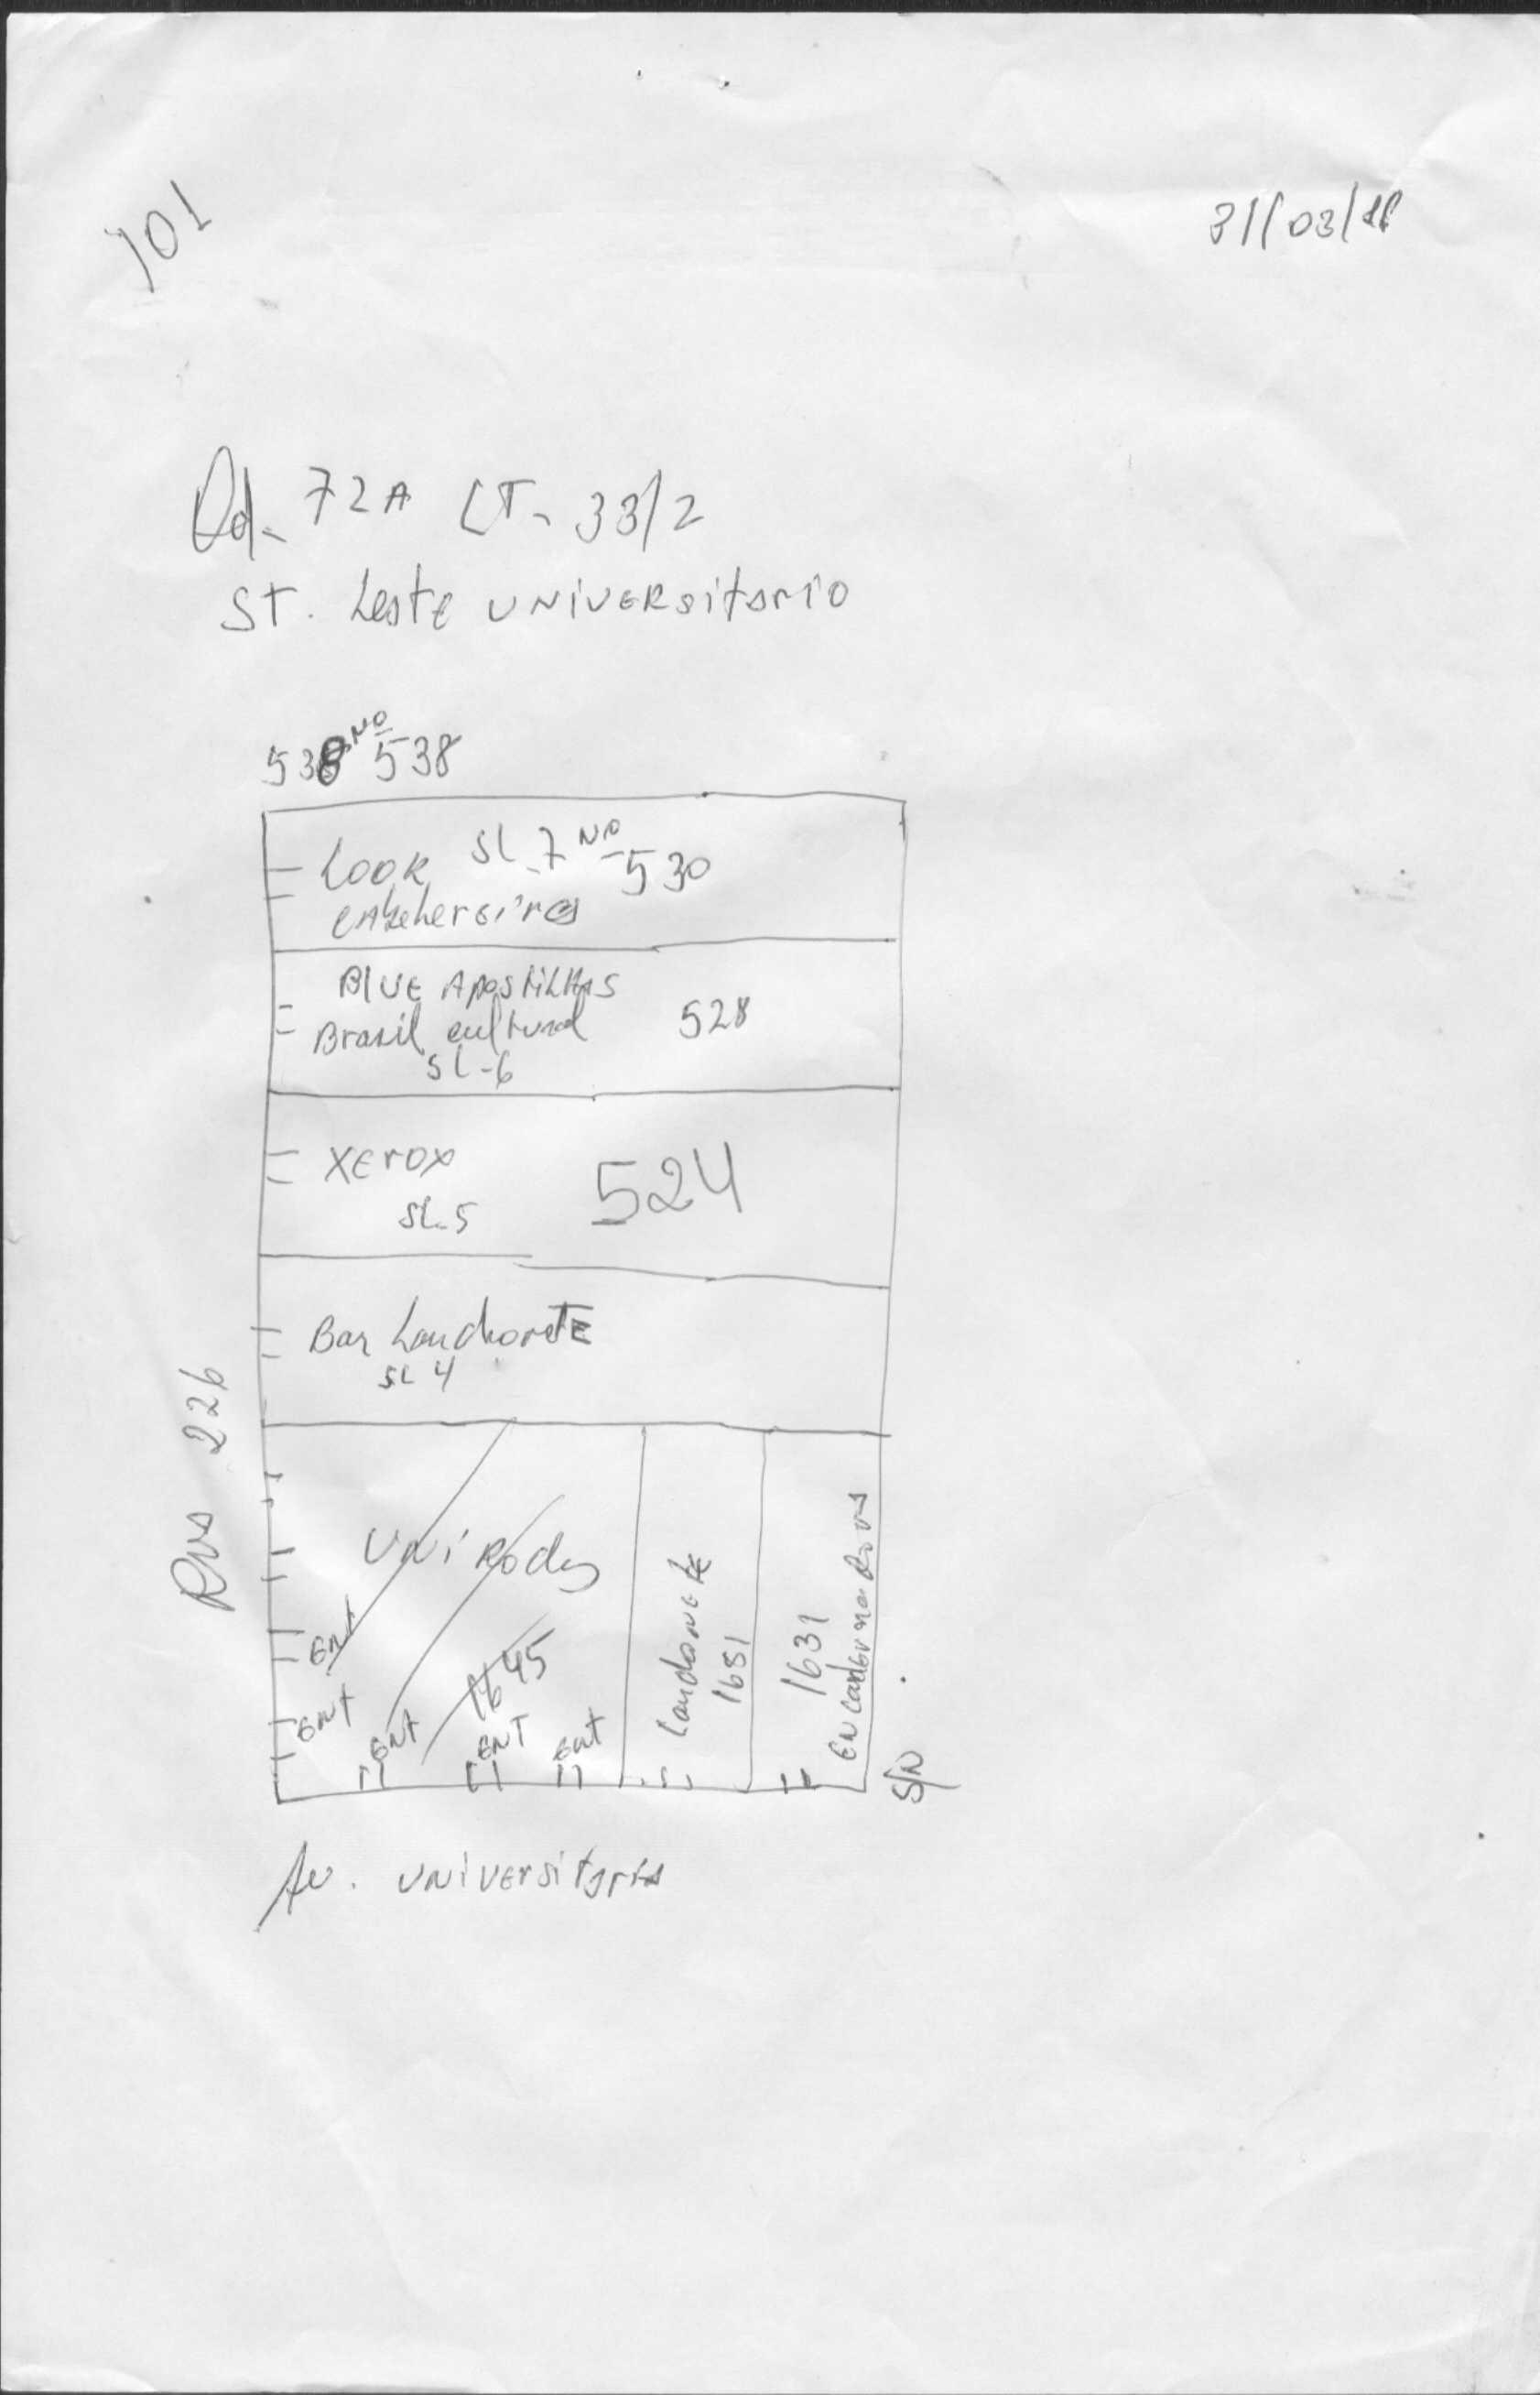 101
31/03/
Qd. 72A LT- 33/2
ST. Leste UNIVERSITARIO
538 Nº 538
LOOK SL.7 Nº 530
BLUE APOSTILHAS
Brasil cultural 528
SL-6
XEROX 524
SL.5
Bar LanchoneTE
SL 4
Rua 226
UNI
ENT
1645
ENT
ENT
ENT
ENT
Lanchonete
1651
1631
S/N
Av. UNIVERSITARIA